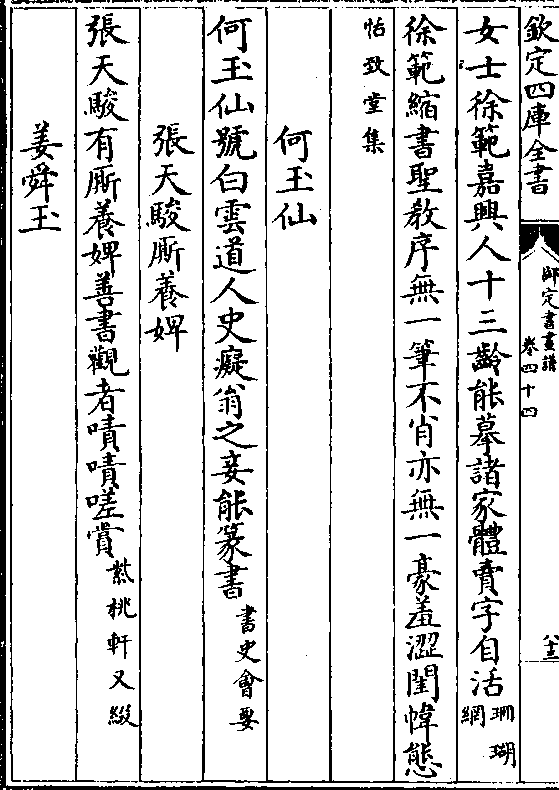 欽定四庫全書
御定書畫譜
卷四十四
八十三
女士徐範嘉興人十三齡能摹諸家體賣字自活珊瑚網
徐範縮書聖教序無一筆不肖亦無一豪羞澀閨幃態
怡致堂集
何玉仙
何玉仙號白雲道人史癡翁之妾能篆書書史會要
張天駿廝養婢
張天駿有廝養婢善書觀者嘖嘖嗟賞紫桃軒又綴
姜舜玉